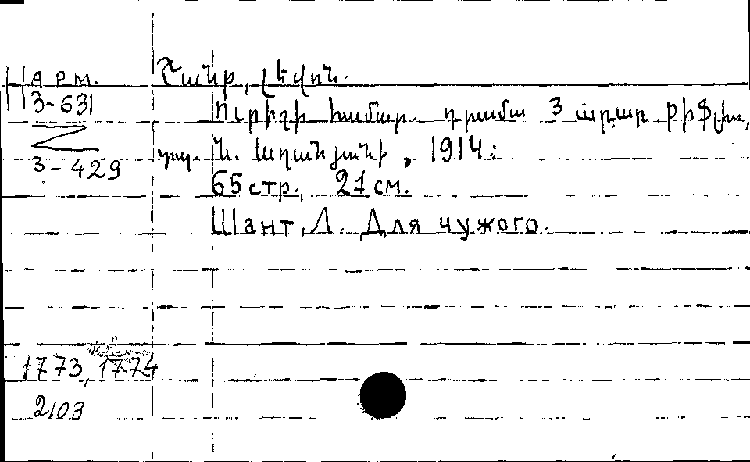 Н арм. Շանթ, Լևոն.
3-631 Ուրիշի համար. դրամա 3 արար. Թիֆլիս,
3-429 տպ. Ն. Աղանյանի, 1914:
65 стр. 21 см.
Шант, Л. Для чужого.
1773, 1774
2103